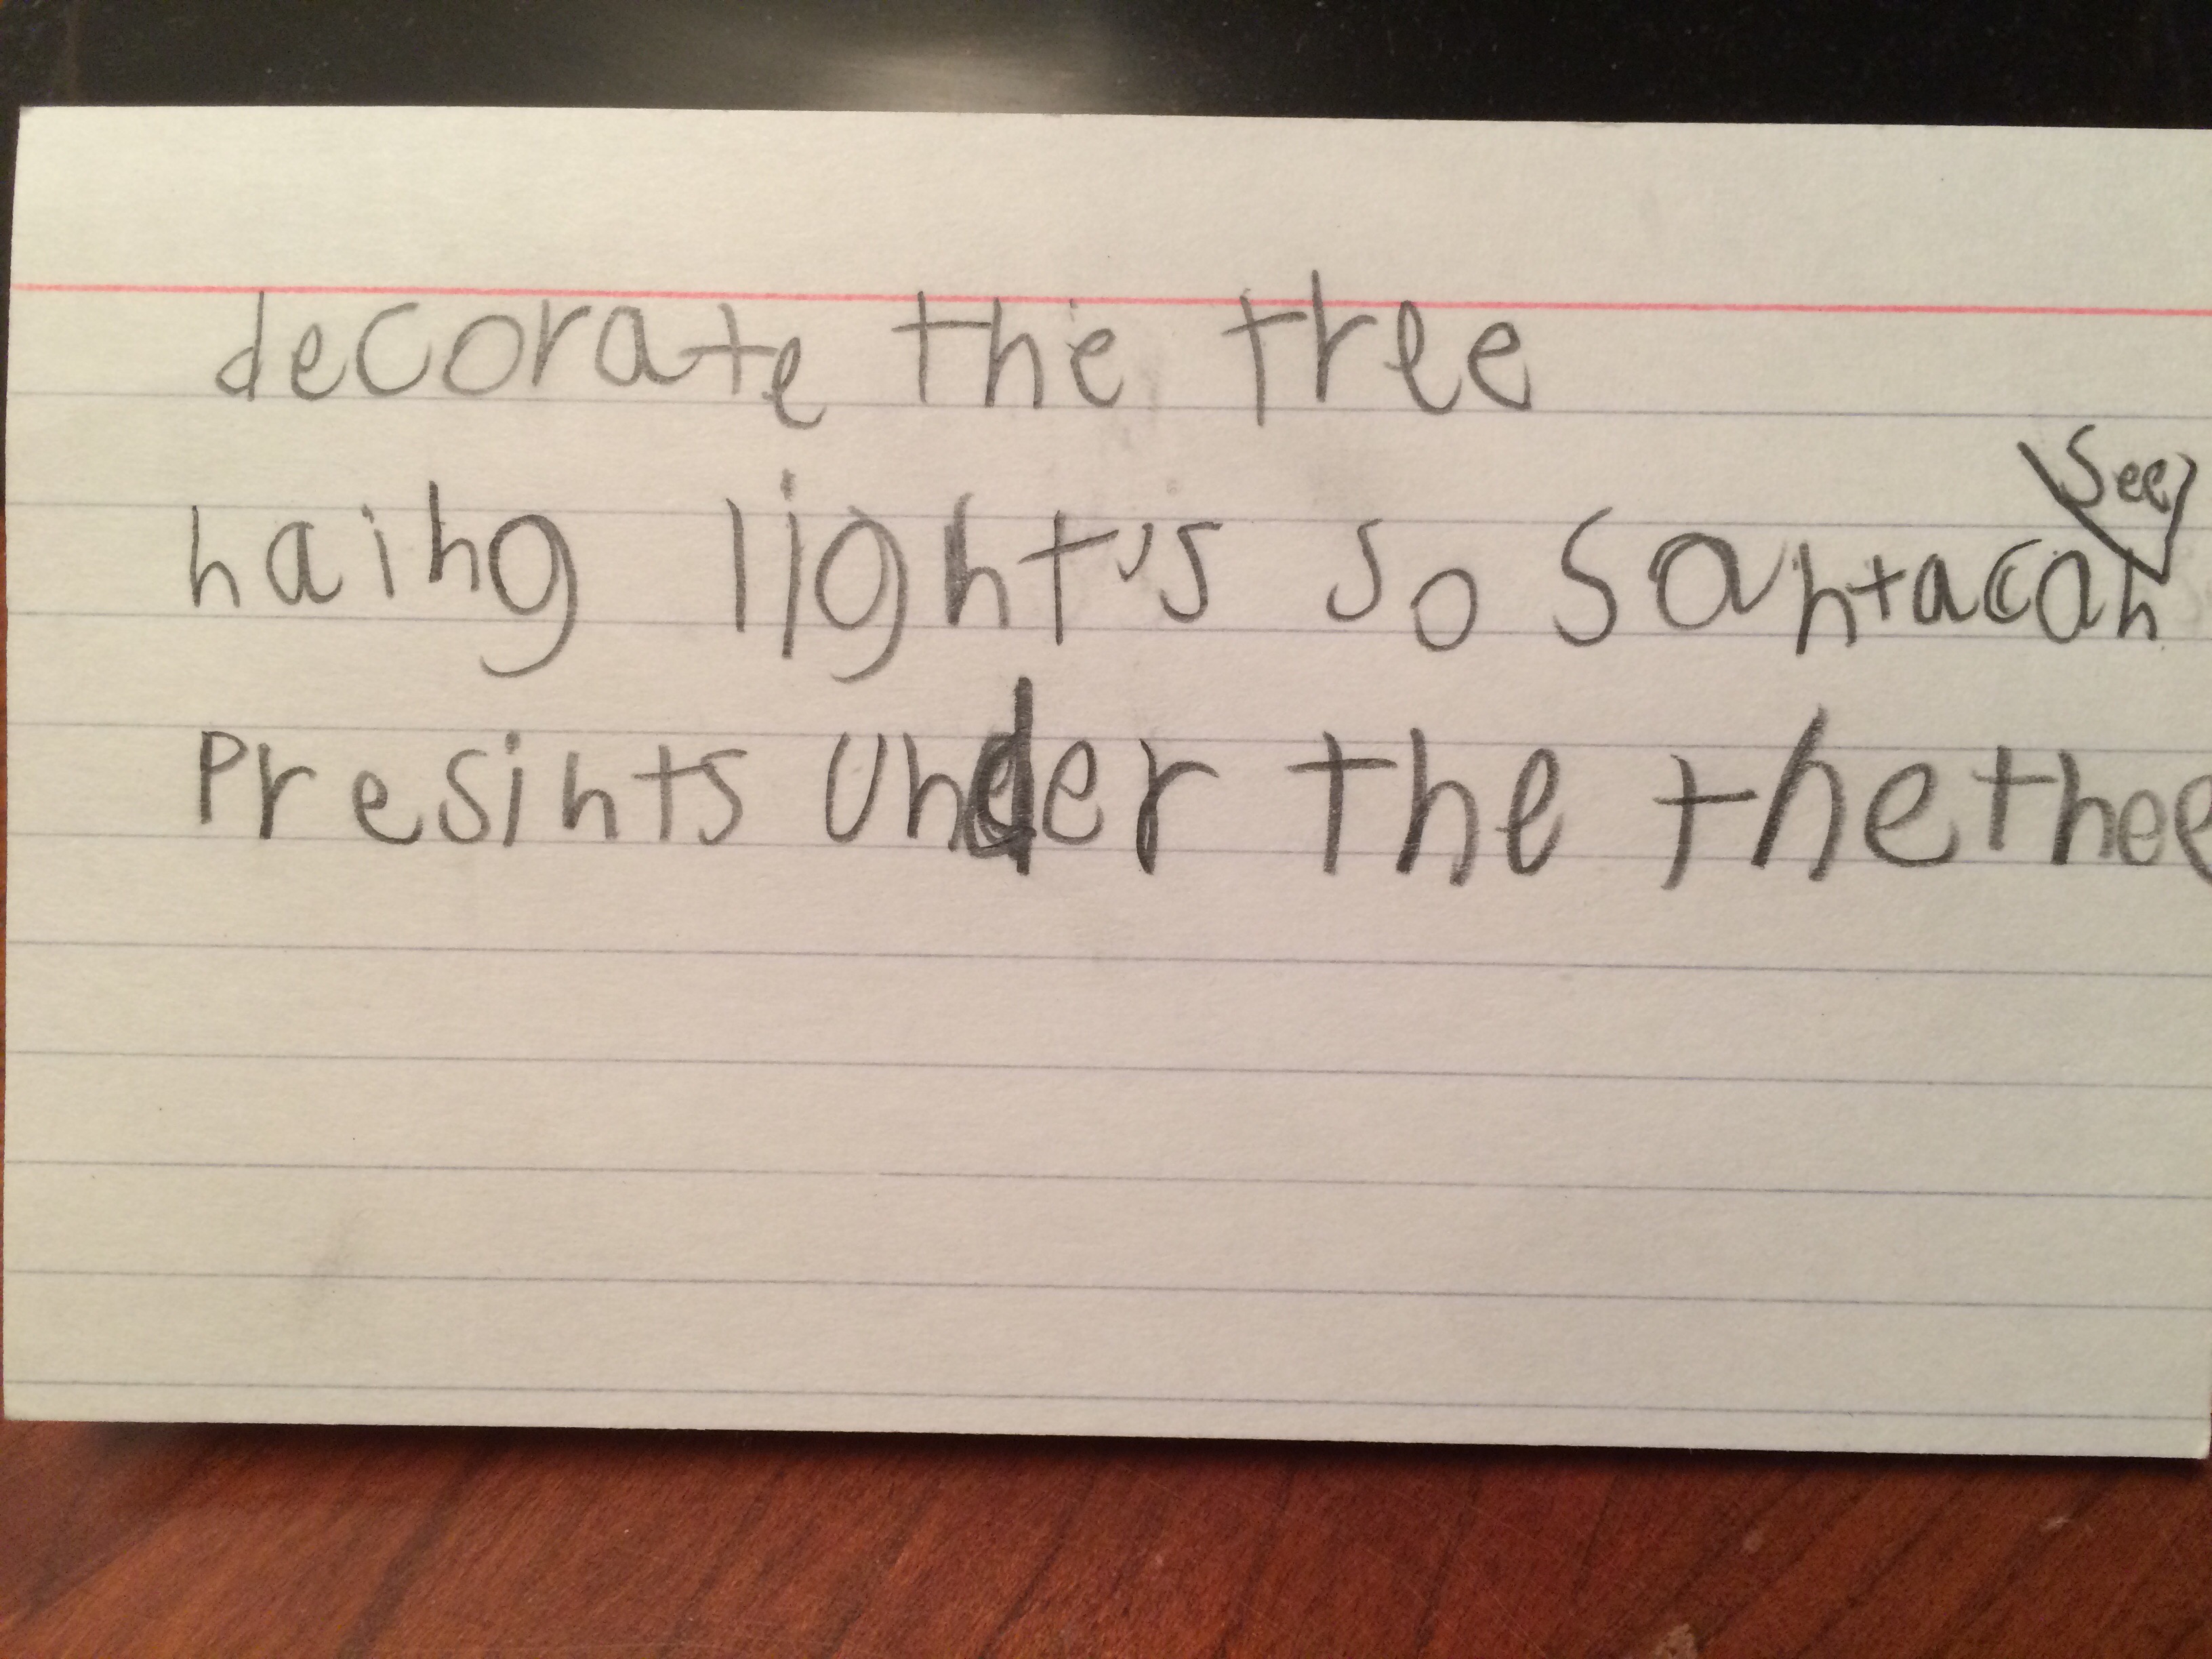 decorate the tree
haing light's so santa can see
Presints under the the thee